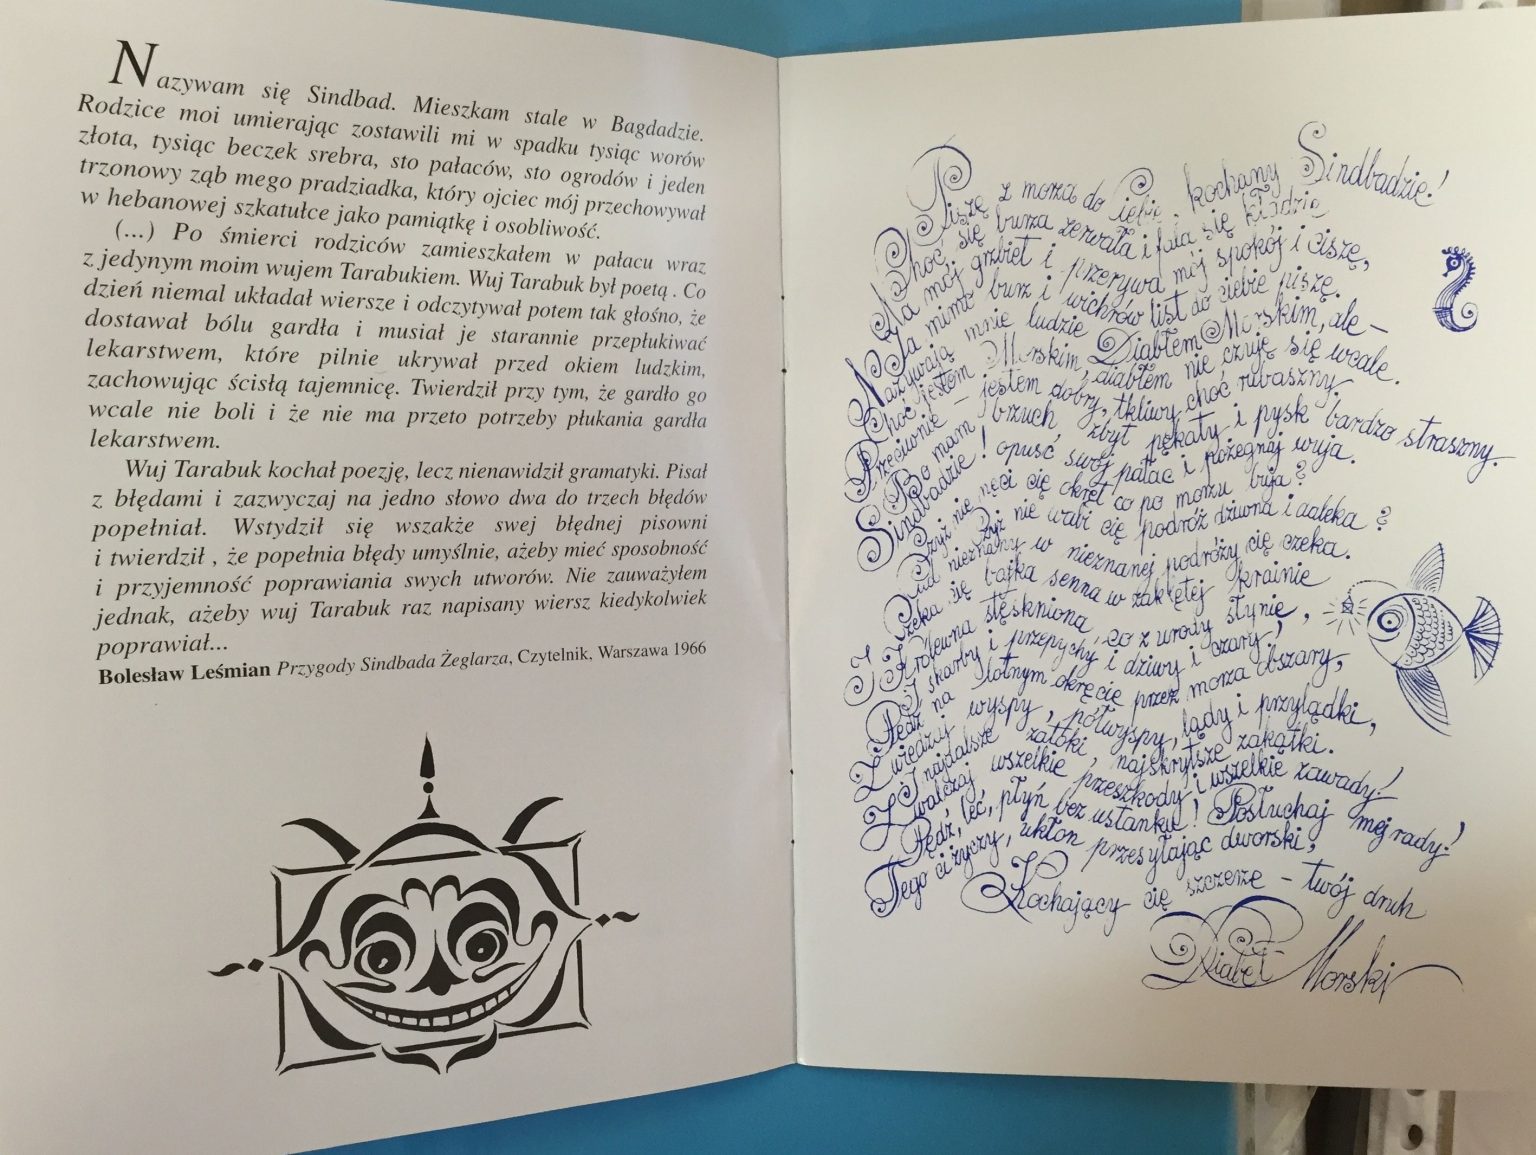 Nazywam się Sindbad. Mieszkam stale w Bagdadzie.
Rodzice moi umierając zostawili mi w spadku tysiąc worów
złota, tysiąc beczek srebra, sto pałaców, sto ogrodów i jeden
trzonowy ząb mego pradziadka, który ojciec mój przechowywał
w hebanowej szkatułce jako pamiątkę i osobliwość.
(...) Po śmierci rodziców zamieszkałem w pałacu wraz
z jedynym moim wujem Tarabukiem. Wuj Tarabuk był poetą . Co
dzień niemal układał wiersze i odczytywał potem tak głośno, że
dostawał bólu gardła i musiał je starannie przepłukiwać
lekarstwem, które pilnie ukrywał przed okiem ludzkim,
zachowując ścisłą tajemnicę. Twierdził przy tym, że gardło go
wcale nie boli i że nie ma przeto potrzeby płukania gardła
lekarstwem.
Wuj Tarabuk kochał poezję, lecz nienawidził gramatyki. Pisał
z błędami i zazwyczaj na jedno słowo dwa do trzech błędów
popełniał. Wstydził się wszakże swej błędnej pisowni
i twierdził , że popełnia błędy umyślnie, ażeby mieć sposobność
i przyjemność poprawiania swych utworów. Nie zauważyłem
jednak, ażeby wuj Tarabuk raz napisany wiersz kiedykolwiek
poprawiał...
Bolesław Leśmian Przygody Sindbada Żeglarza, Czytelnik, Warszawa 1966
Piszę z morza do Ciebie, kochany Sindbadzie!
Choć się burza zerwała i fala się kładzie
Na mój grzbiet i przerywa mój spokój i ciszę,
Ja mimo burz i wichrów list do ciebie piszę.
Nazywają mnie ludzie Diabłem Morskim, ale –
Choć jestem Morskim, diabłem nie czuję się wcale.
Przeciwnie – jestem dobry, tkliwy choć rubaszny.
Bo mam brzuch zbyt pękaty i pysk bardzo straszny.
Sindbadzie! opuść swój pałac i pożegnaj wuja.
Czyż nie nęci cię okręt co po morzu buja?
Czyż nie wabi cię podróż dziwna i daleka?
Cud nieznany w nieznanej podróży cię czeka.
Czeka cię bajka senna w zaklętej krainie
I Królewna stęskniona co z urody słynie,
I skarby i przepychy i dziwy i czary,
Pędź na lotnym okręcie przez morza obszary,
Zwiedzaj wyspy, półwyspy, lądy i przylądki,
I najdalsze zatoki, najskrytsze zakątki.
Zwalczaj wszelkie przeszkody i wszelkie zawady!
Pędź, leć, płyń bez ustanku! Posłuchaj mej rady!
Tego ci życzy, ukłon przesyłając dworski,
Kochający cię szczerze – twój druh
Diabeł Morski